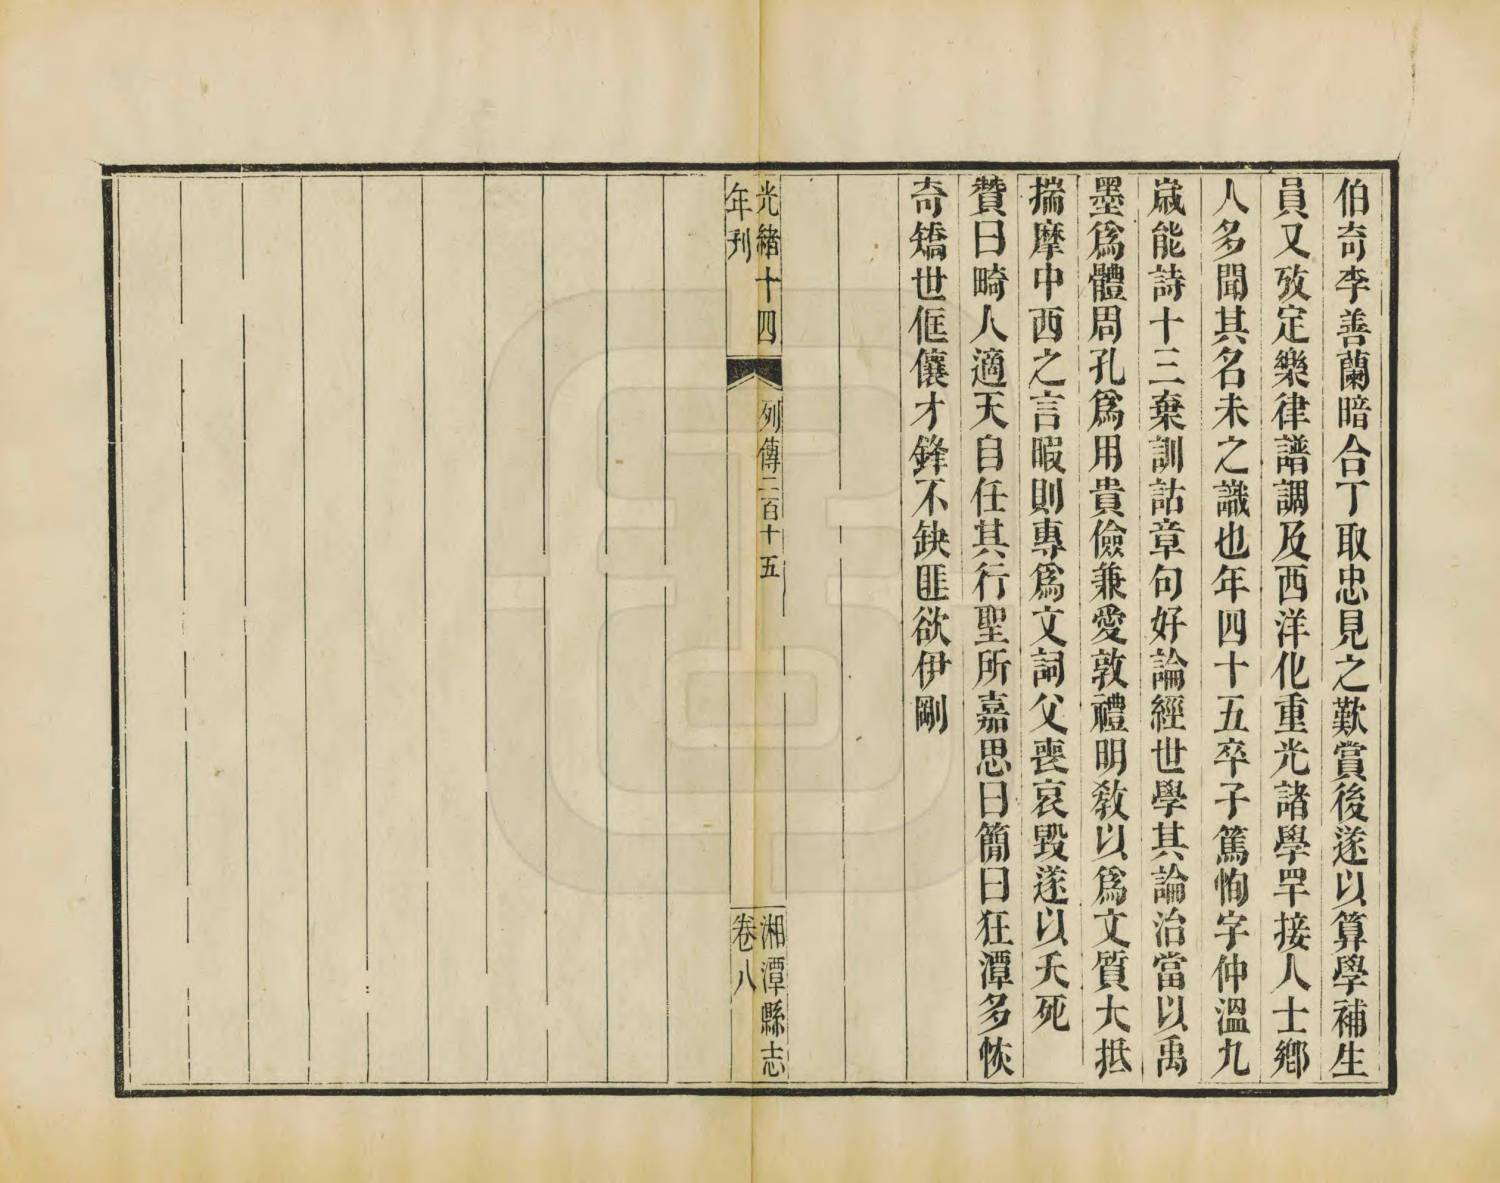 伯奇李善蘭暗合丁取忠見之歎賞後遂以算學補生
員又攷定樂律譜調及西洋化重光諸學罕接人士鄉
人多聞其名未之識也年四十五卒子篤恂字仲溫九
歲能詩十三棄訓詁章句好論經世學其論治當以禹
墨爲體周孔爲用貴儉兼愛敦禮明敎以爲文質大抵
揣摩中西之言暇則專爲文詞父喪哀毀遂以夭死
贊曰畸人適天自任其行聖所嘉思曰簡曰狂潭多恢
奇矯世俇儴才鋒不缺匪欲伊剛
光緒十四
年刋
列傳二百十五
湘潭縣志
卷八